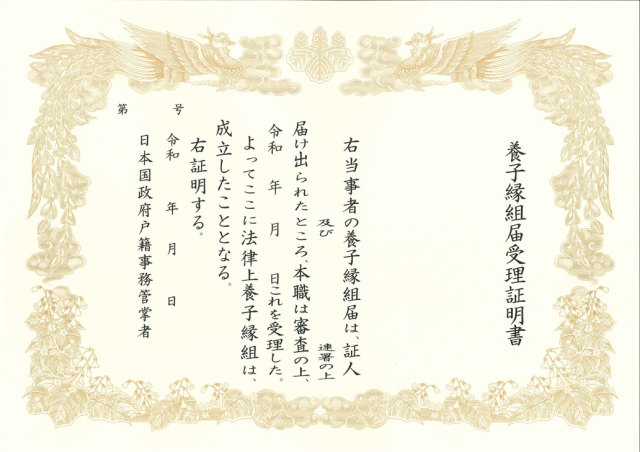 養子縁組届受理証明書
右当事者の養子縁組届は、証人
及び
連署の上
届け出られたところ、本職は審査の上、
令和 年 月 日これを受理した。
よってここに法律上養子縁組は、
成立したこととなる。
右証明する。
令和 年 月 日
日本国政府戸籍事務管掌者
第 号